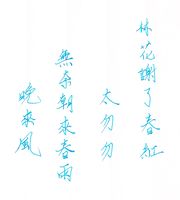 林花謝了春紅
太匆匆
無奈朝來春雨
晚來風